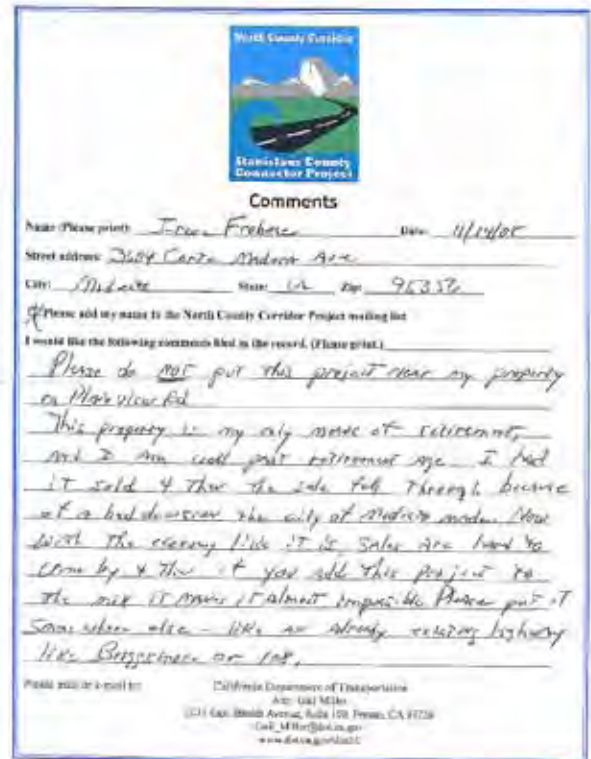 North County Corridor
Stanislaus County
Connector Project
Comments
Name (Please print): Date: 11/14/08
Street address: 3604 Ave
City: State: CA Zip: 95356
Please add my name to the North County Corridor Project mailing list
I would like the following comments filed in the record. (Please print.)
Please do NOT put this project near my property
on Plainview Rd
This property is my only means of retirement,
and I am well past retirement age. I had
it sold & then the sale fell through because
of a bad decision the city of Modesto made. Now
with the economy like it is, sales are hard to
come by & then if you add this project to
the mix it makes it almost impossible Please put it
somewhere else - like an already existing highway
like or 108.
Please mail or e-mail to: California Department of Transportation
Attn: Gail Miller
Avenue, Suite 100, Fresno, CA 93726
Gail_Miller@dot.ca.gov